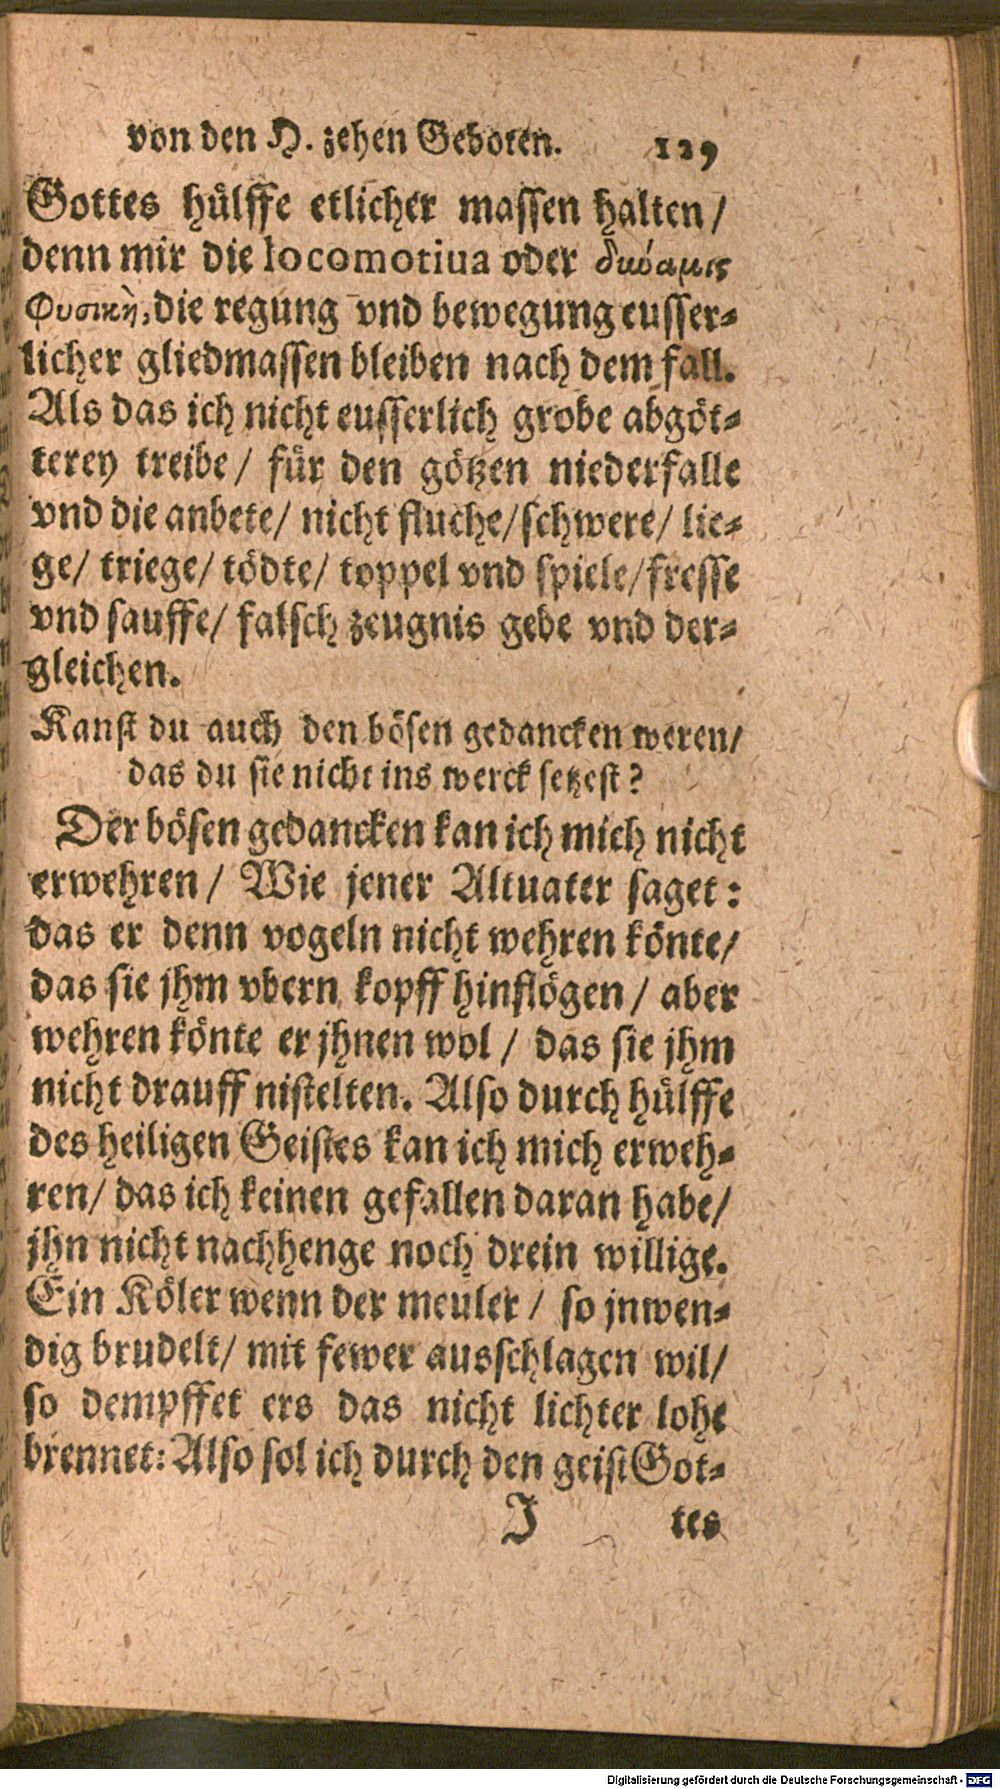 von den H. zehen Geboten. 129
Gottes hülffe etlicher massen halten/
denn mir die locomotiua oder δυνάμις
Φυσικὴ, die regung vnd bewegung eusser-
licher gliedmassen bleiben nach dem fall.
Als das ich nicht eusserlich grobe abgöt-
terey treibe/ für den götzen niederfalle
vnd die anbete/ nicht fluche/ schwere/ lie-
ge/ triege/ tödte/ toppel vnd spiele/ fresse
vnd sauffe/ falsch zeugnis gebe vnd der-
gleichen.
Kanst du auch den bösen gedancken weren/
das du sie nicht ins werck setzest?
Der bösen gedancken kan ich mich nicht
erwehren/ Wie jener Altuater saget:
das er denn vogeln nicht wehren könte/
das sie jhm vbern kopff hinflögen/ aber
wehren könte er jhnen wol/ das sie jhm
nicht drauff nistelten. Also durch hülffe
des heiligen Geistes kan ich mich erweh-
ren/ das ich keinen gefallen daran habe/
jhn nicht nachhenge noch drein willige.
Ein Köler wenn der meuler/ so jnwen-
dig brudelt/ mit fewer ausschlagen wil/
so dempffet ers das nicht lichter lohe
brennet: Also sol ich durch den geist Got-
J tes
Digitalisierung gefördert durch die Deutsche Forschungsgemeinschaft - DFG